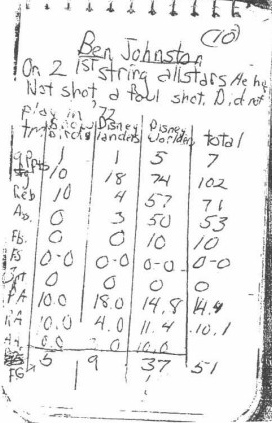 (10)
Ben Johnston
On 2 1st string allstars As he
Not shot a foul shot. Didnot
Play in '72
tm Birchs Disney landers Disney worlders total
g 1 1 5 7
10 18 74 102
Reb 10 4 57 71
As. 0 3 50 53
Fb. 0 0 10 10
FS 0-0 0-0 0-0 0-0
0 0 0 0
PA 10.0 18.0 14.8 14.4
RA 10.0 4.0 11.4 10.1
0.0 0 10.0
FG 5 9 37 51